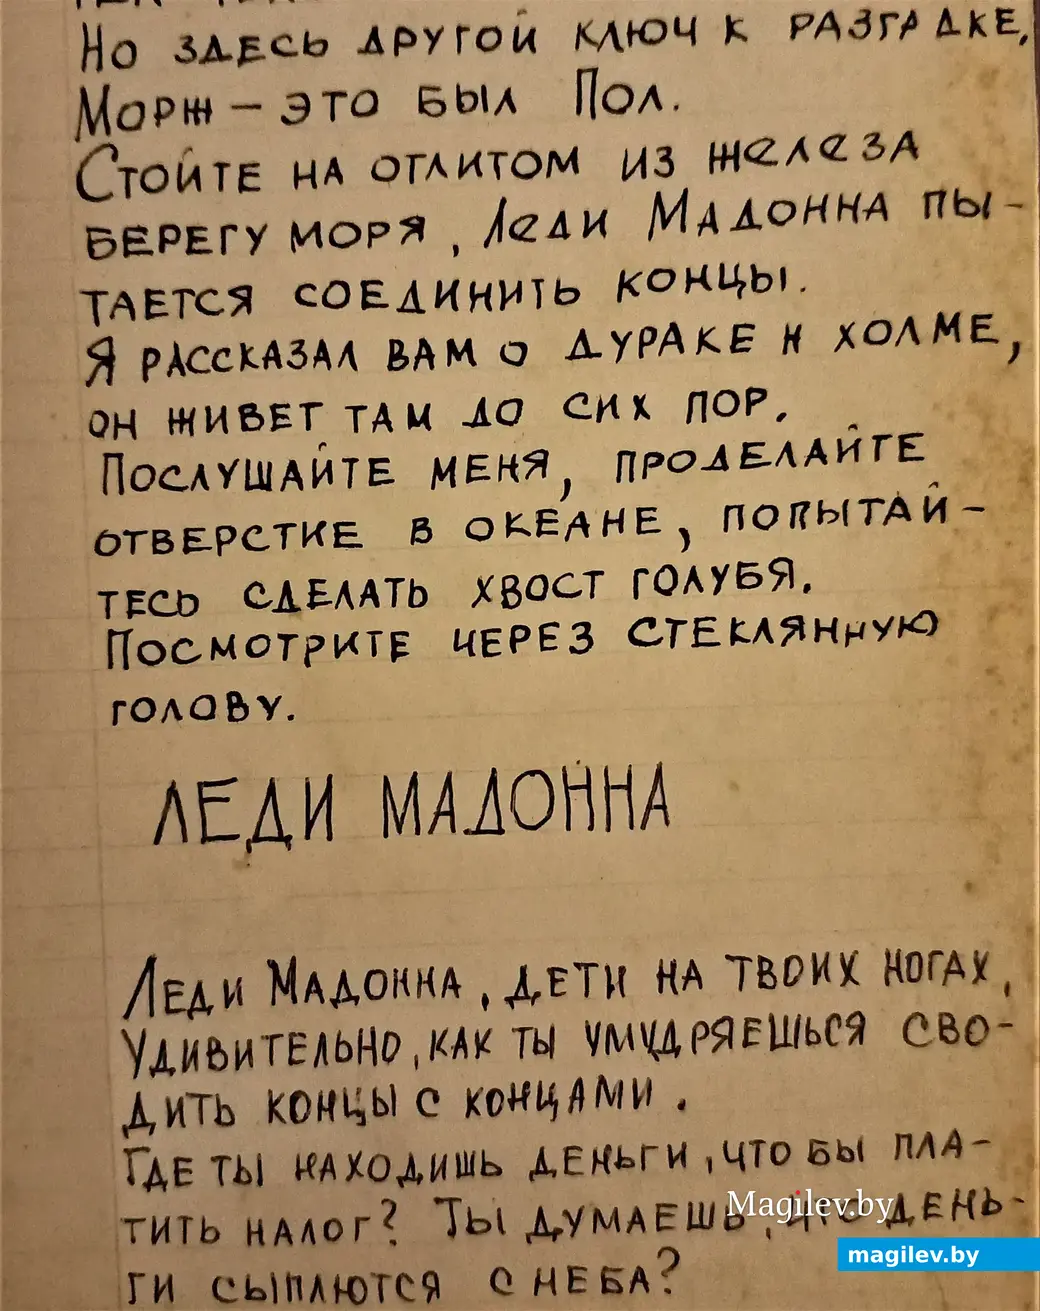 Но здесь другой ключ к разгадке,
Морж – это был Пол.
Стойте на отлитом из железа
берегу моря, Леди Мадонна пы-
тается соединить концы.
Я рассказал вам о дураке н холме,
он живет там до сих пор.
Послушайте меня, проделайте
отверстие в океане, попытай-
тесь сделать хвост голубя.
Посмотрите через стеклянную
голову.
ЛЕДИ МАДОННА
Леди Мадонна, дети на твоих ногах,
Удивительно, как ты умудряешься сво-
дить концы с концами.
Где ты находишь деньги, что бы пла-
тить налог? Ты думаешь, что день-
ги сыплются с неба?
Magilev.by
magilev.by